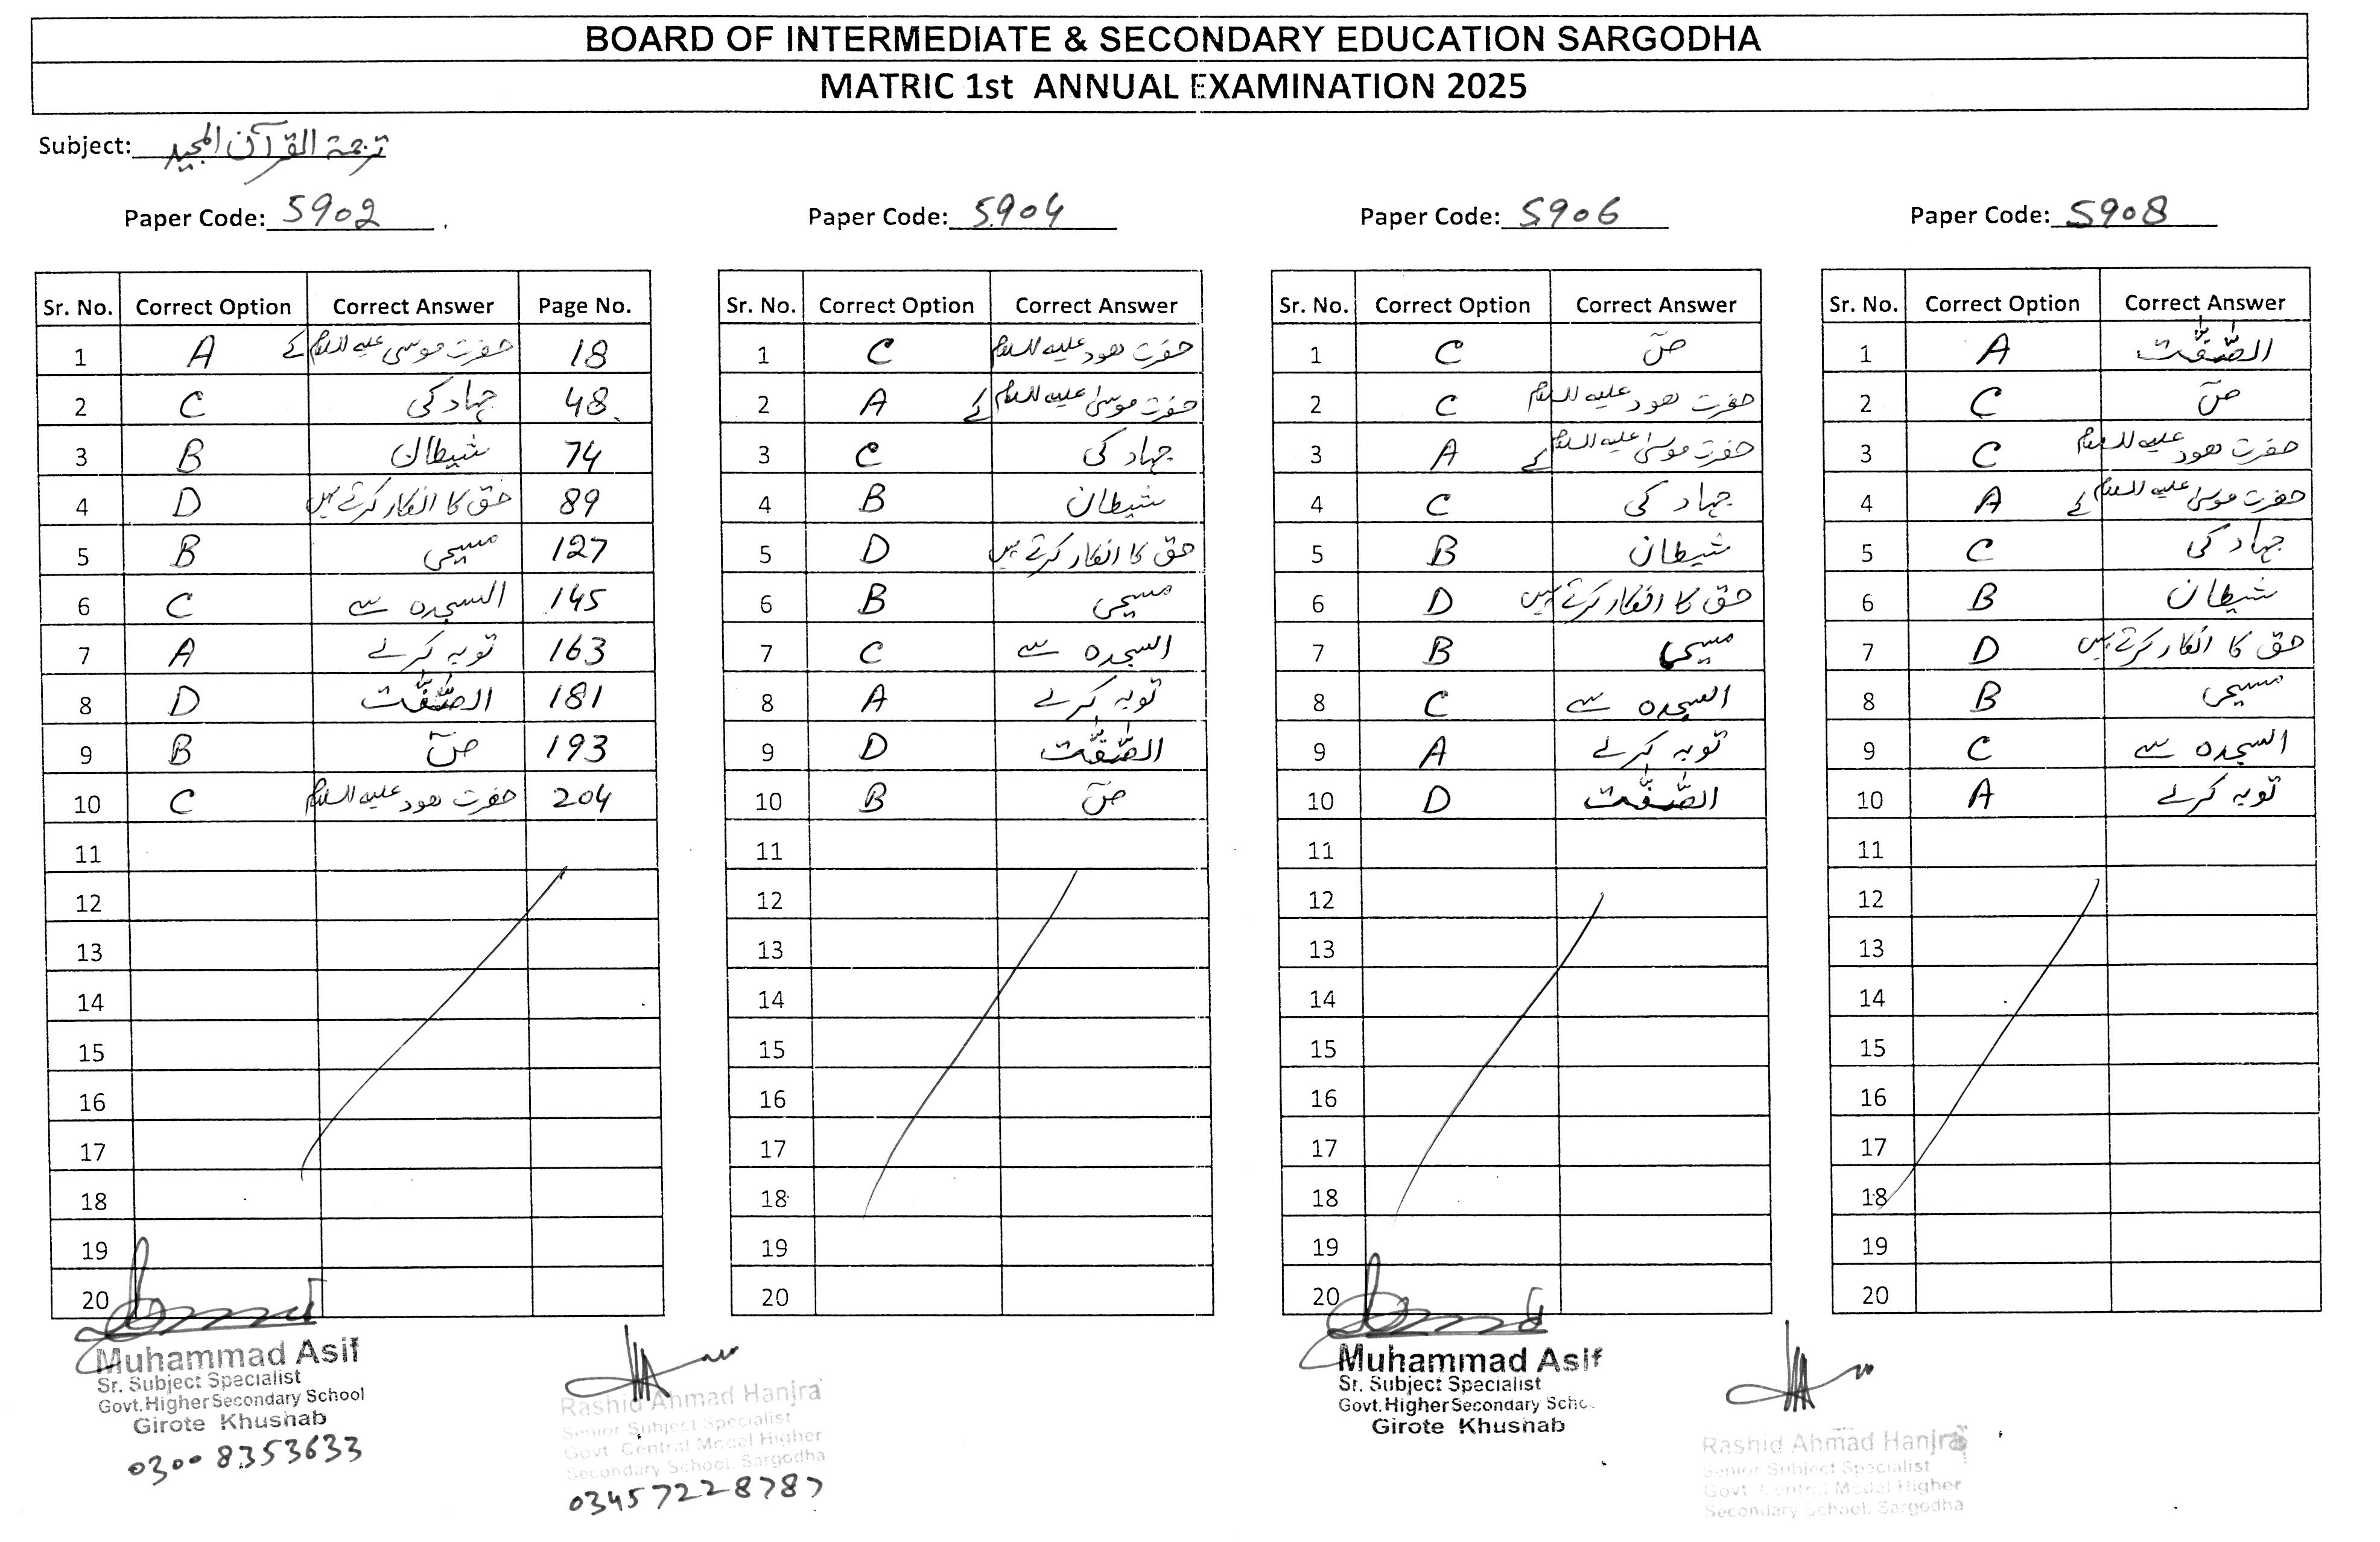 BOARD OF INTERMEDIATE & SECONDARY EDUCATION SARGODHA
MATRIC 1st ANNUAL EXAMINATION 2025
Subject: ترجمۃ القرآن المجید
Paper Code: 5902
Sr. No. Correct Option Correct Answer Page No.
1 A حضرت موسیٰ علیہ السلام کے 18
2 C جہاد کی 48
3 B شیطان 74
4 D حق کا انکار کرتے ہیں 89
5 B مسیحی 127
6 C السجدہ سے 145
7 A توبہ کرلے 163
8 D الصّٰفّٰت 181
9 B صٓ 193
10 C حضرت ھود علیہ السلام 204
11
12
13
14
15
16
17
18
19
20
Paper Code: 5904
Sr. No. Correct Option Correct Answer
1 C حضرت ھود علیہ السلام
2 A حضرت موسیٰ علیہ السلام کے
3 C جہاد کی
4 B شیطان
5 D حق کا انکار کرتے ہیں
6 B مسیحی
7 C السجدہ سے
8 A توبہ کرلے
9 D الصّٰفّٰت
10 B صٓ
11
12
13
14
15
16
17
18
19
20
Paper Code: 5906
Sr. No. Correct Option Correct Answer
1 C صٓ
2 C حضرت ھود علیہ السلام
3 A حضرت موسیٰ علیہ السلام کے
4 C جہاد کی
5 B شیطان
6 D حق کا انکار کرتے ہیں
7 B مسیحی
8 C السجدہ سے
9 A توبہ کرلے
10 D الصّٰفّٰت
11
12
13
14
15
16
17
18
19
20
Paper Code: 5908
Sr. No. Correct Option Correct Answer
1 A الصّٰفّٰت
2 C صٓ
3 C حضرت ھود علیہ السلام
4 A حضرت موسیٰ علیہ السلام کے
5 C جہاد کی
6 B شیطان
7 D حق کا انکار کرتے ہیں
8 B مسیحی
9 C السجدہ سے
10 A توبہ کرلے
11
12
13
14
15
16
17
18
19
20
Muhammad Asif
Sr. Subject Specialist
Govt. Higher Secondary School
Girote Khushab
0300 8353633
Rashid Ahmad Hanjra
Senior Subject Specialist
Govt. Central Model Higher
Secondary School, Sargodha
03457228787
Muhammad Asif
Sr. Subject Specialist
Govt. Higher Secondary Scho
Girote Khushab
Rashid Ahmad Hanjra
Senior Subject Specialist
Govt. Central Model Higher
Secondary School, Sargodha